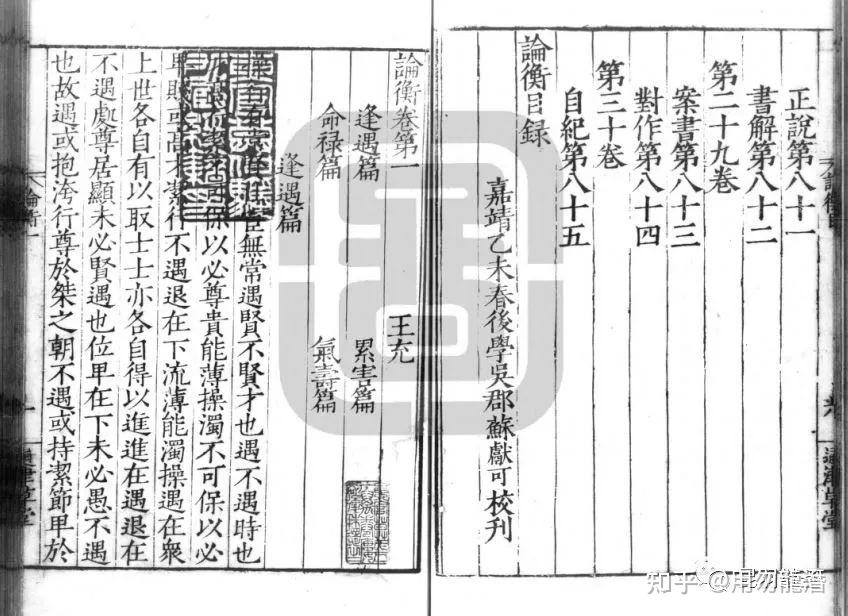 正說第八十一
書解第八十二
第二十九卷
案書第八十三
對作第八十四
第三十卷
自紀第八十五
論衡目録
嘉靖乙未春後學吳郡蘇獻可校刊
通津草堂
論衡卷第一
王充
逢遇篇 累害篇
命禄篇 氣壽篇
逢遇篇
操行有常賢仕宦無常遇賢不賢才也遇不遇時也
不可保以必尊貴能薄操濁不可保以必
卑賤或高才潔行不遇退在下流薄能濁操遇在衆
上世各自有以取士士亦各自得以進進在遇退在
不遇處尊居顯未必賢遇也位卑在下未必愚不遇
也故遇或抱洿行尊於桀之朝不遇或持潔節卑於
論衡一
一
通津草堂
知乎 @用勿龍潛